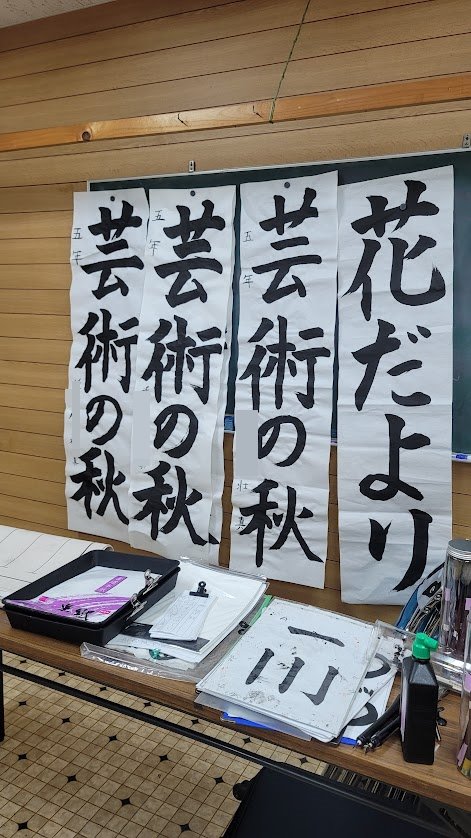 花だより
芸術の秋
五年
壮真
芸術の秋
五年
芸術の秋
五年